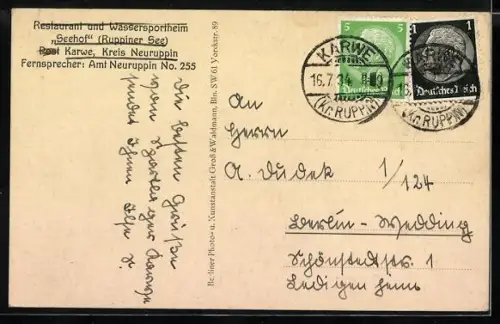 Restaurant und Wassersportheim
„Seehof" (Ruppiner See)
Post Karwe, Kreis Neuruppin
Fernsprecher: Amt Neuruppin No. 255
Die besten Grüße
vom
Karwe
sendet Ihnen Ilse
Berliner Photo- u. Kunstanstalt Groß & Waldmann, Bln. SW 61 Yorckstr. 89
5
5
Deutsches Reich
1
1
Deutsches Reich
KARWE
16.7.34
(Kr. RUPPIN)
KARWE
(Kr. RUPPIN)
An
Herrn
A. Dudek 1/124
Berlin-Wedding
Schönstedtstr. 1
Ledigenheim